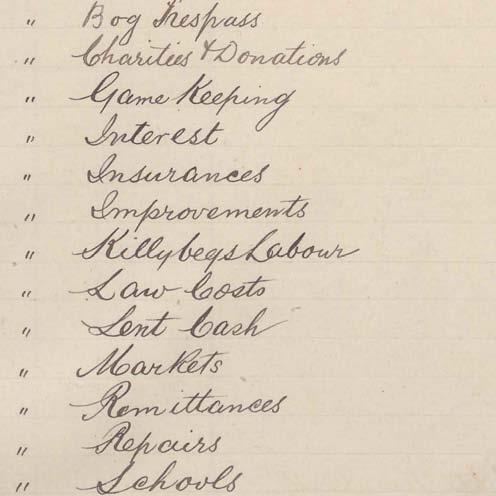 " Bog Trespass
" Charities & Donations
" Game Keeping
" Interest
" Insurances
" Improvements
" Killybegs Labour
" Law Costs
" Lent Cash
" Markets
" Remittances
" Repairs
" Schools